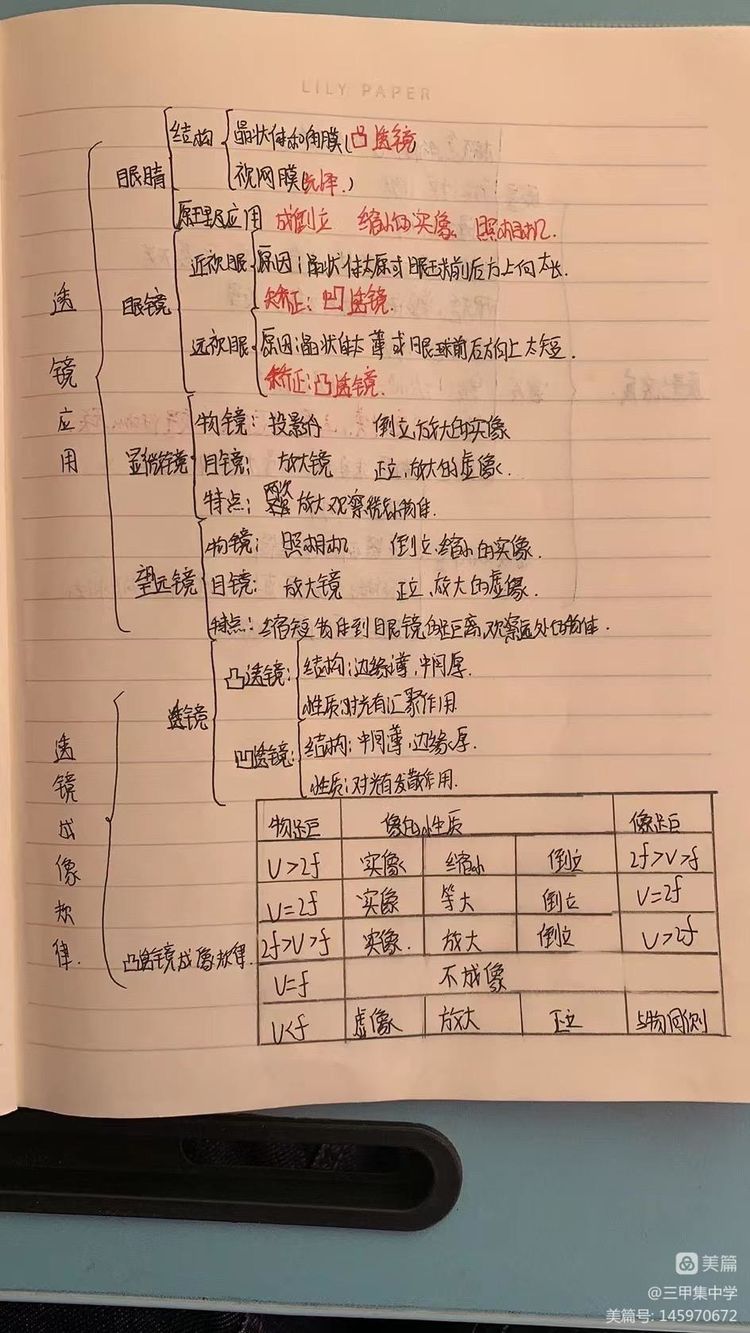 LILY PAPER
透镜应用
眼睛
结构
晶状体和角膜(凸透镜
视网膜(光屏.)
原理及应用 成倒立 缩小的实像. 照相机.
眼镜
近视眼
原因:晶状体太厚或眼球前后方上向太长.
矫正:凹透镜.
远视眼
原因:晶状体太薄或眼球前后方向上太短.
矫正:凸透镜.
显微镜
物镜: 投影仪 倒立,放大的实像
目镜: 放大镜 正立,放大的虚像.
特点: 两次放大观察微小物体.
望远镜
物镜: 照相机 倒立,缩小的实像.
目镜: 放大镜 正立,放大的虚像.
特点:缩短物体到目眼镜的距离,观察远处的物体.
透镜成像规律.
透镜
凸透镜:
结构:边缘薄,中间厚.
性质:对光有汇聚作用.
凹透镜:
结构:中间薄,边缘厚.
性质:对光有发散作用.
凸透镜成像规律.
物距 像的性质 像距
U>2f 实像 缩小 倒立 2f>V>f
U=2f 实像 等大 倒立 V=2f
2f>U>f 实像. 放大 倒立 V>2f
U=f 不成像
U<f 虚像 放大 正立 与物同侧
美篇
@三甲集中学
美篇号: 145970672